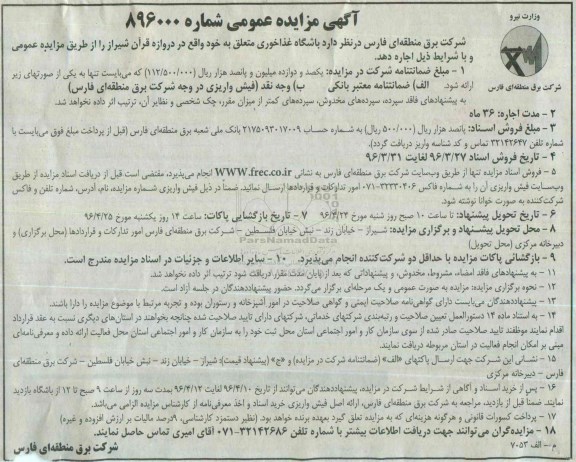 آگهی مزایده عمومی شماره ۸۹۶۰۰۰
وزارت نیرو
شرکت برق منطقه‌ای فارس
شرکت برق منطقه‌ای فارس درنظر دارد باشگاه غذاخوری متعلق به خود واقع در دروازه قرآن شیراز را از طریق مزایده عمومی
و با شرایط ذیل اجاره دهد.
۱ - مبلغ ضمانتنامه شرکت در مزایده: یکصد و دوازده میلیون و پانصد هزار ریال (۱۱۲/۵۰۰/۰۰۰) که می‌بایست تنها به یکی از صورتهای زیر
ارائه شود. الف) ضمانتنامه معتبر بانکی ب) وجه نقد (فیش واریزی در وجه شرکت برق منطقه‌ای فارس)
به پیشنهادهای فاقد سپرده، سپرده‌های مخدوش، سپرده‌های کمتر از میزان مقرر، چک شخصی و نظایر آن، ترتیب اثر داده نخواهد شد.
۲ - مدت اجاره: ۳۶ ماه
۳ - مبلغ فروش اسناد: پانصد هزار ریال (۵۰۰/۰۰۰ ریال) به شماره حساب ۲۱۷۵۰۹۳۰۱۷۰۰۹ بانک ملی شعبه برق منطقه‌ای فارس (قبل از پرداخت مبلغ فوق می‌بایست با
شماره تلفن ۳۲۱۴۲۶۴۷ تماس و کد شناسه واریز دریافت گردد).
۴ - تاریخ فروش اسناد ۹۶/۳/۲۷ لغایت ۹۶/۳/۳۱
۵ - فروش اسناد مزایده تنها از طریق وب‌سایت شرکت برق منطقه‌ای فارس به نشانی www.frec.co.ir انجام می‌پذیرد، مقتضی است قبل از دریافت اسناد مزایده از طریق
وب‌سایت فیش واریزی آن را به شماره فاکس ۳۲۳۳۰۴۰۶-۰۷۱ امور تدارکات و قراردادها ارسال نمائید. ضمناً در ذیل فیش واریزی شماره مزایده، نام، آدرس، شماره تلفن و فاکس
شرکت‌کننده به صورت خوانا نوشته شود.
۶ - تاریخ تحویل پیشنهاد: تا ساعت ۱۰ صبح روز شنبه مورخ ۹۶/۴/۲۴ ۷ - تاریخ بازگشایی پاکات: ساعت ۱۴ روز یکشنبه مورخ ۹۶/۴/۲۵
۸ - محل تحویل پیشنهاد و برگزاری مزایده: شیراز - خیابان زند - نبش خیابان فلسطین - شرکت برق منطقه‌ای فارس امور تدارکات و قراردادها (محل برگزاری) و
دبیرخانه مرکزی (محل تحویل)
۹ - بازگشایی پاکات مزایده با حداقل دو شرکت‌کننده انجام می‌پذیرد. ۱۰ - سایر اطلاعات و جزئیات در اسناد مزایده مندرج است.
۱۱ - به پیشنهادهای فاقد امضاء، مشروط، مخدوش، و پیشنهاداتی که بعد از پایان مدت مقرر دریافت شود ترتیب اثر داده نخواهد شد.
۱۲ - نحوه برگزاری مزایده: مزایده به صورت عمومی و یک مرحله‌ای برگزار می‌گردد. حضور پیشنهاددهندگان در جلسه آزاد است.
۱۳ - پیشنهاددهندگان می‌بایست دارای گواهی‌نامه صلاحیت ایمنی و گواهی صلاحیت در امور آشپزخانه و رستوران بوده و تجربه مرتبط با موضوع مزایده را دارا باشند.
۱۴ - به استناد ماده ۱۴ دستورالعمل تعیین صلاحیت و رتبه‌بندی شرکتهای خدماتی، شرکتهای دارای تایید صلاحیت شده چنانچه بخواهند در استان‌های دیگری نسبت به عقد قرارداد
اقدام نمایند موظفند تایید صلاحیت صادر شده از سوی سازمان کار و امور اجتماعی استان محل ثبت خود را به سازمان کار و امور اجتماعی استان محل فعالیت ارائه داده و معرفی‌نامه‌ای
مبنی بر امکان انجام فعالیت در استان مربوطه دریافت نمایند.
۱۵ - نشانی این شرکت جهت ارسال پاکتهای «الف» (ضمانتنامه شرکت در مزایده) و «ج» (پیشنهاد قیمت): شیراز - خیابان زند - نبش خیابان فلسطین - شرکت برق منطقه‌ای
فارس - دبیرخانه مرکزی
۱۶ - پس از خرید اسناد و آگاهی از شرایط شرکت در مزایده، پیشنهاددهندگان می‌توانند از تاریخ ۹۶/۴/۱۰ لغایت ۹۶/۴/۱۲ بمدت سه روز از ساعت ۹ صبح تا ۱۲ از باشگاه بازدید
نمایند. ضمناً قبل از بازدید، مراجعه به شرکت برق منطقه‌ای فارس، ارائه اصل فیش واریزی خرید اسناد و اخذ معرفی‌نامه از کارشناس مزایده الزامی می‌باشد.
۱۷ - پرداخت کسورات قانونی و هرگونه هزینه‌ای که به مزایده تعلق گیرد بعهده برنده خواهد بود. (نظیر دستمزد کارشناسی، ۹درصد مالیات بر ارزش افزوده و غیره)
۱۸ - مزایده‌گران می‌توانند جهت دریافت اطلاعات بیشتر با شماره تلفن ۳۲۱۴۲۶۸۶-۰۷۱ آقای امیری تماس حاصل نمایند.
م - الف ۷۰۵۳
شرکت برق منطقه‌ای فارس